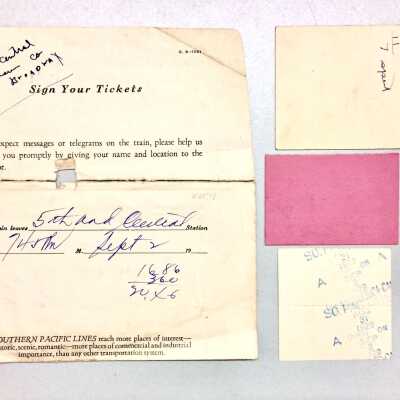 Central
Broadway
Sign Your Tickets
expect messages or telegrams on the train, please help us
you promptly by giving your name and location to the
in leaves 5th and Central Station
745 PM M Sept 2 19
1686
360
2046
SOUTHERN PACIFIC LINES reach more places of interest—
toric, scenic, romantic—more places of commercial and industrial
importance, than any other transportation system.
7
A
SO. PA
A
A